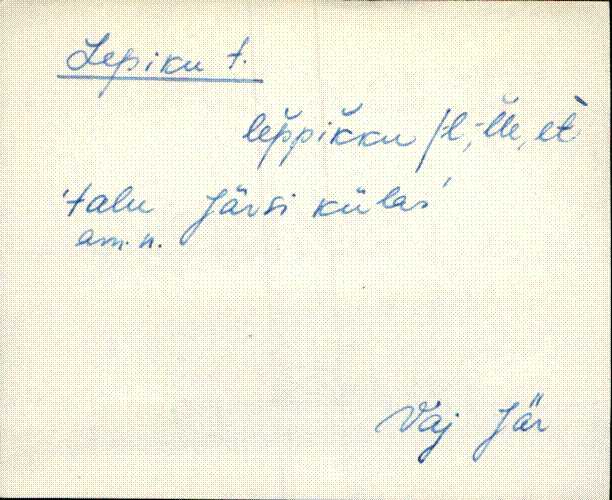 Lepiku t.
lep̆pik̆ku /-l, -l̆le, et̀
'talu Järsi külas'
am. n.
Vaj Jär